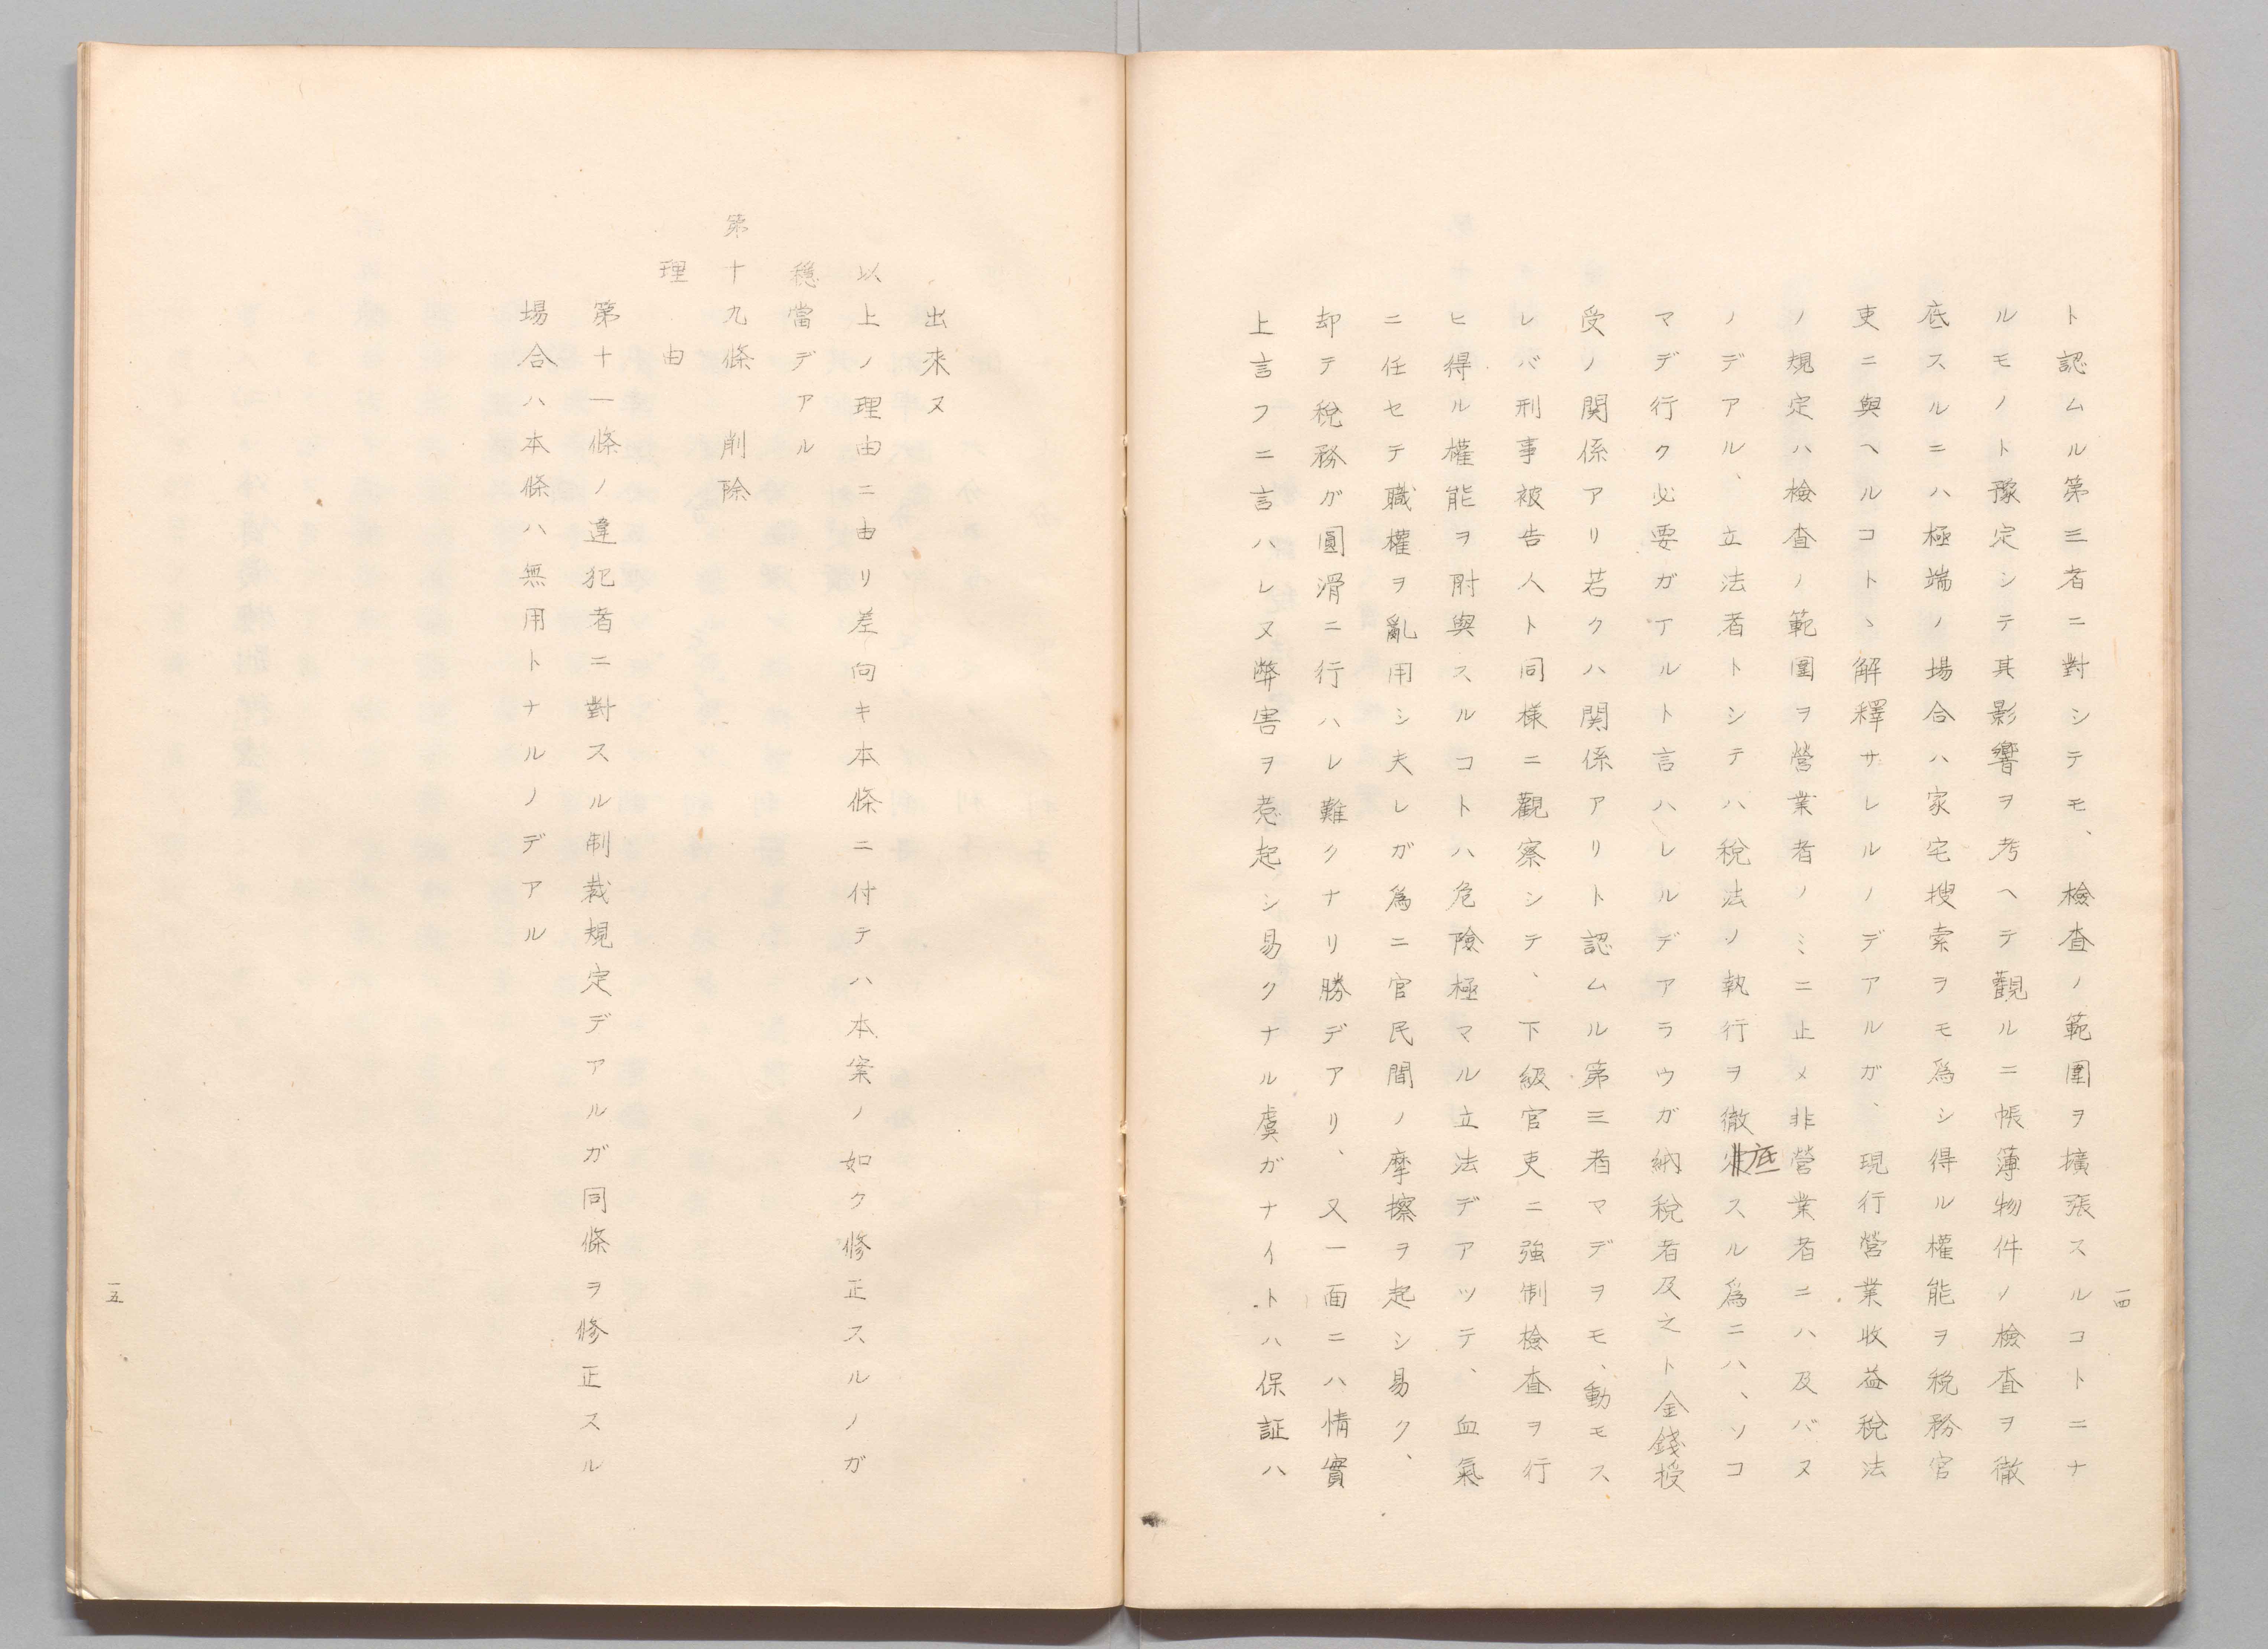 ト認ムル第三者ニ對シテモ、檢査ノ範圍ヲ擴張スルコトニナ
ルモノト豫定シテ其影響ヲ考ヘテ觀ルニ帳簿物件ノ檢査ヲ徹
底スルニハ極端ノ場合ハ家宅搜索ヲモ爲シ得ル權能ヲ稅務官
吏ニ與ヘルコトヽ解釋サレルノデアルガ、現行營業收益稅法
ノ規定ハ檢査ノ範圍ヲ營業者ノミニ止メ非營業者ニハ及バヌ
ノデアル、立法者トシテハ稅法ノ執行ヲ徹底スル爲ニハ、ソコ
マデ行ク必要ガアルト言ハレルデアラウガ納稅者及之ト金錢授
受ノ関係アリ若クハ関係アリト認ムル第三者マデヲモ、動モス
レバ刑事被告人ト同樣ニ觀察シテ、下級官吏ニ強制檢査ヲ行
ヒ得ル權能ヲ附與スルコトハ危險極マル立法デアツテ、血氣
ニ任セテ職權ヲ亂用シ夫レガ爲ニ官民間ノ摩擦ヲ起シ易ク、
却テ稅務ガ圓滑ニ行ハレ難クナリ勝デアリ、又一面ニハ情實
上言フニ言ハレヌ弊害ヲ惹起シ易クナル虞ガナイトハ保証ハ
一四
出來ヌ
以上ノ理由ニ由リ差向キ本條ニ付テハ本案ノ如ク修正スルノガ
穩當デアル
第十九條 削除
理由
第十一條ノ違犯者ニ對スル制裁規定デアルガ同條ヲ修正スル
場合ハ本條ハ無用トナルノデアル
一五